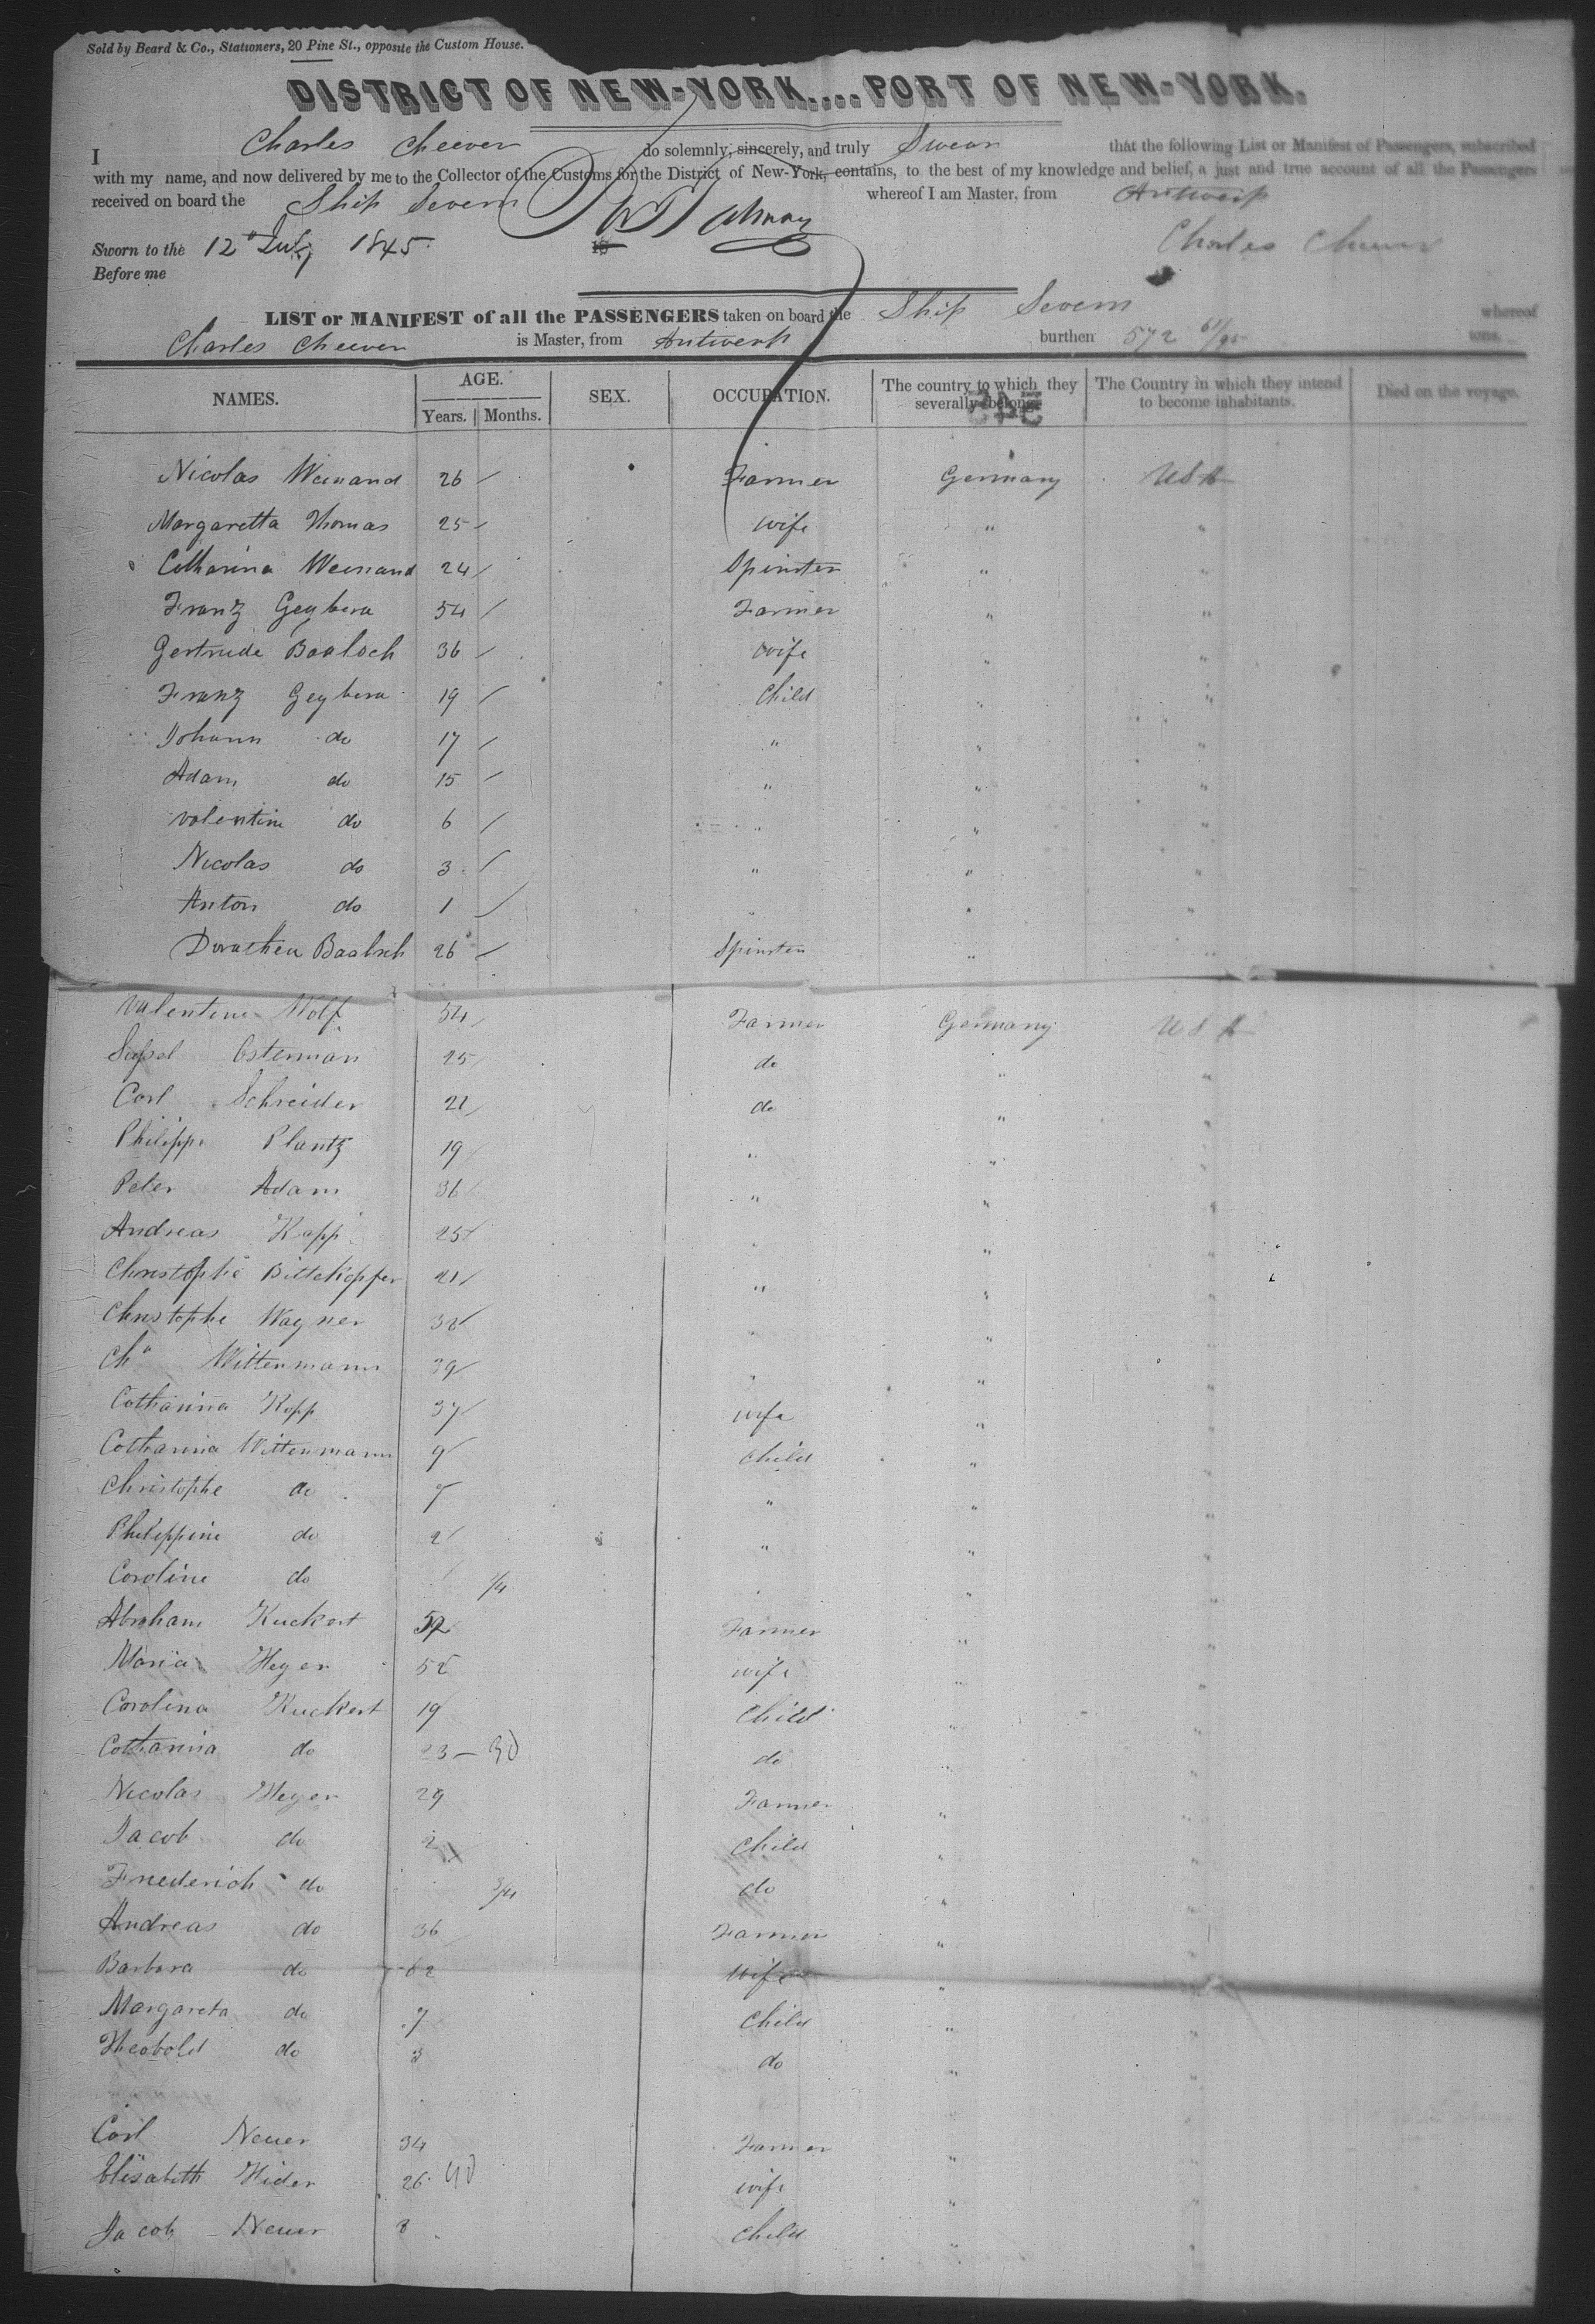 Sold by Beard & Co., Stationers, 20 Pine St., opposite the Custom House.
DISTRICT OF NEW-YORK....PORT OF NEW-YORK.
I Charles Cheever do solemnly, sincerely, and truly Swear that the following List or Manifest of Passengers, subscribed
with my name, and now delivered by me to the Collector of the Customs for the District of New-York, contains, to the best of my knowledge and belief, a just and true account of all the Passengers
received on board the Ship Severn whereof I am Master, from Antwerp
Sworn to the 12 July 1845. Charles Cheever
Before me
LIST or MANIFEST of all the PASSENGERS taken on board the Ship Severn whereof
Charles Cheever is Master, from Antwerp burthen 572 61/95 tons.
NAMES. AGE. SEX. OCCUPATION. The country to which they severally belong. The Country in which they intend to become inhabitants. Died on the voyage.
Years. Months.
Nicolas Weinand 26 Farmer Germany USA
Margaretta Thomas 25 wife " "
Catharina Weinand 24 Spinster " "
Franz Geybera 54 Farmer " "
Gertrude Baaloch 36 wife " "
Franz Geybera 19 Child " "
Johann do 17 " " "
Adam do 15 " " "
Valentine do 6 " " "
Nicolas do 3 " " "
Anton do 1 " " "
Dorathea 26 Spinster " "
Valentine Wolf 54 Farmer Germany USA
Osterman 25 do " "
Carl Schreider 21 do " "
Philippe Plantz 19 " " "
Peter Adam 36 " " "
Andreas Kopp 25 " " "
Christophe Bittekopfer 21 " " "
Christophe Wagner 32 " " "
Ch Wittenmann 39 " " "
Catharina Kopp 37 wife " "
Catharina Wittenmann 9 Child " "
Christophe do 7 " " "
Philippine do 2 " " "
Caroline do 1/4 " " "
Abraham Kuckert 52 Farmer " "
Maria Heyer 52 wife " "
Carolina Kuckert 19 Child " "
Catharina do 23 do " "
Nicolas Heyer 29 Farmer " "
Jacob do 2 Child " "
Friederich do 3/4 do " "
Andreas do 36 Farmer " "
Barbara do wife " "
Margareta do 7 Child " "
Theobold do 3 do " "
Carl Neuer 34 Farmer " "
Elisabeth Hider 26 wife " "
Jacob Neuer 3 child " "